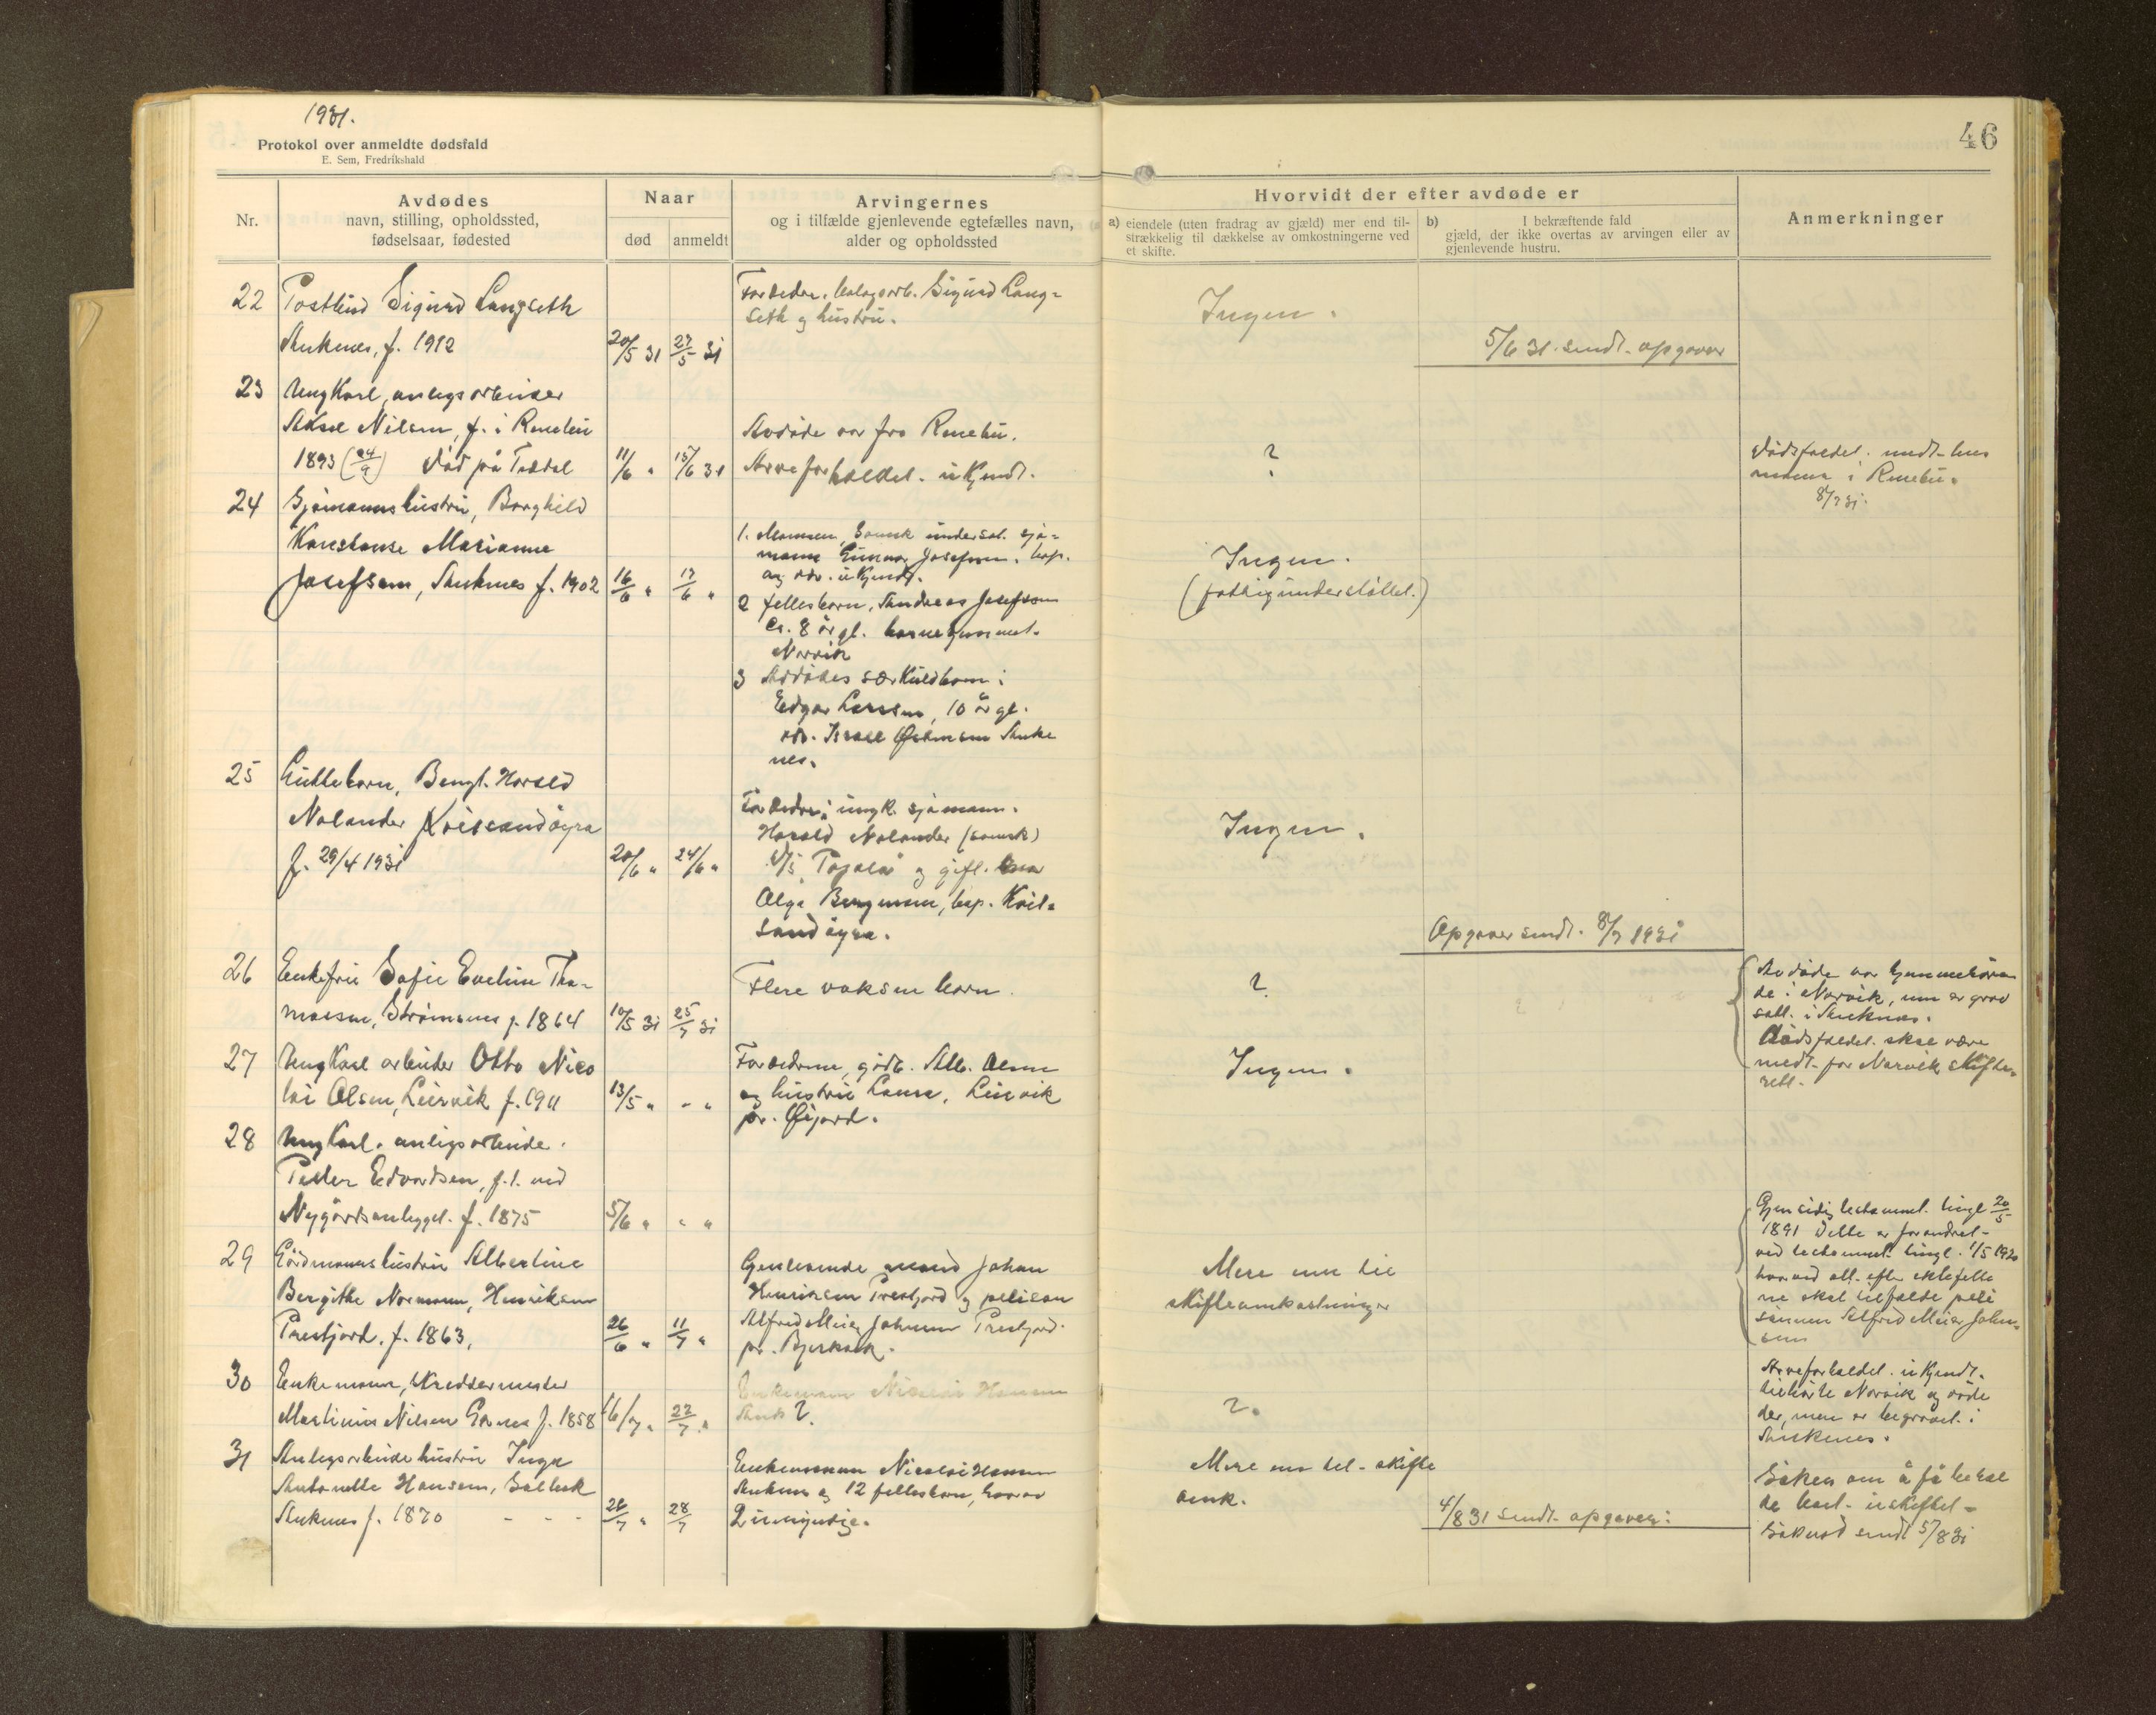 1931.
Protokol over anmeldte dødsfald
E. Sem, Fredrikshald
46
Nr.
Avdødes
navn, stilling, opholdssted,
fødselsaar, fødested
Naar
død
anmeldt
Arvingernes
og i tilfælde gjenlevende egtefælles navn,
alder og opholdssted
Hvorvidt der efter avdøde er
a) eiendele (uten fradrag av gjæld) mer end til-
strækkelig til dækkelse av omkostningerne ved
et skifte.
b) I bekræftende fald
gjæld, der ikke overtas av arvingen eller av
gjenlevende hustru.
Anmerkninger
22 Postbud Sigurd Langseth
Ankenes, f. 1912
20/5 31 27/5 31
Foreldre. Sigurd Lang-
seth og hustru.
Ingen.
5/6 31. sendt opgaver
23 Ungkarl, anlegsarbeider
Aksel Nilsen, f. i Rennebu
1893 (24/9) død på
11/6 " 15/6 31
Avdøde var fra Rennebu.
Arveforholdet ukjendt.
?
Dødsfaldet medt. lens
mann i Rennebu.
8/7 31.
24 Sjømannshustru, Borghild
Konstanse Marianne
Josefsen, Ankenes f. 1902
16/6 " 17/6 "
1. Mannen, svensk undersot. sjø-
mann Gunnar Josefson. bop.
og adr. ukjendt.
2 fellesbarn, Andreas Josefson
ca. 8 år gl. barnehjemmet.
Narvik
3 Avdødes særkuldbarn:
Edgar Larsen, 10 år gl.
adr. Israel Anke
nes.
Ingen.
(fattigunderstøttet.)
25 Guttebarn, Bengt Harald
Nolander
f. 29/4 1931
20/6 " 24/6 "
Foreldre: ungk. sjømann.
Harald Nolander (svensk)
og
Olga bop.
Ingen.
Opgaver sendt. 8/7 1931
26 Enkefru Sofie Eveline Tho-
massen, Strømsnes f. 1864
10/5 31 25/7 31
Flere voksne barn.
?
Avdøde var hjemmehøren
de i Narvik, men er grav
satt i Ankenes.
Dødsfaldet skal være
medt. for Narvik skifte-
rett.
27 Ungkarl arbeider Otto Nico
lai Olsen, Leirvik f. 1911
13/5 " - "
Foreldrene, gårdb. Alb. Olsen
og hustru Laura, Leirvik
pr. Øijord.
Ingen.
28 Ungkarl. anlegsarbeide.
Petter Edvardsen, f.t. ved
Nygårdsanlegget. f. 1875
5/6 " " "
29 Gårdmannshustru Albertine
Bergithe Normann, Henriksen
Trestjord. f. 1863,
26/6 " 11/7 "
Gjenlevende mand Johan
Henriksen Trestjord og pleiesøn
Alfred Meier Johnsen Trestjord.
pr. Bjerkvik.
Mere enn til
skifteomkostninger
Gjensidig testament. tingl 20/5
1891 Dette er forandret
ved testament tingl. 1/5 1920
hvorved alt efter ektefelle
ne skal tilfalde pleie
sønnen Alfred Meier John-
sen
30 Enkemann, skreddermester
Martinius Nilsen f. 1858
16/7 " 22/7 "
Enkemann Nicolai Hansen
Ank ?
?.
Arveforholdet ukjendt.
tilhørte Narvik og døde
der, men er begravet i
Ankenes.
31 Anlegsarbeiderhustru Inga
Antonette Hansen,
Ankenes f. 1870 - - -
26/7 " 28/7
Enkemann Nicolai Hansen
Ankenes og 12 fellesbarn, hvorav
2 umyndige.
Mere enn til skifte
omk.
4/8 31 sendt opgaver:
Søker om å få behol
de boet uskiftet -
Søknad sendt 5/8 31